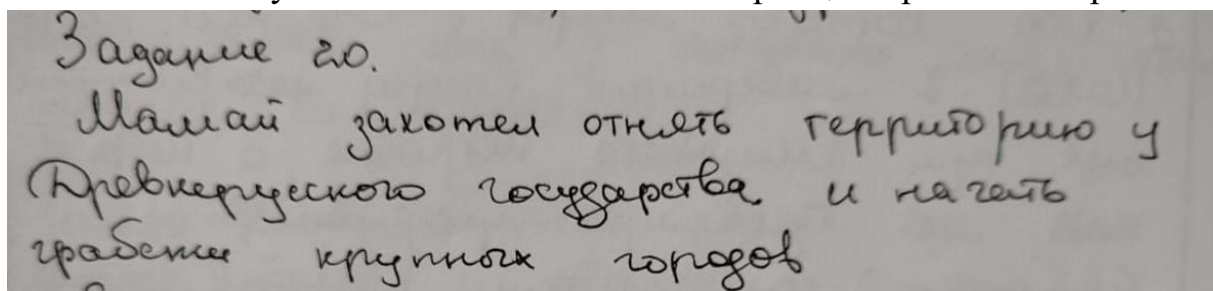 Задание 20.
Мамай захотел отнять территорию у
Древнерусского государства и начать
грабежи крупных городов